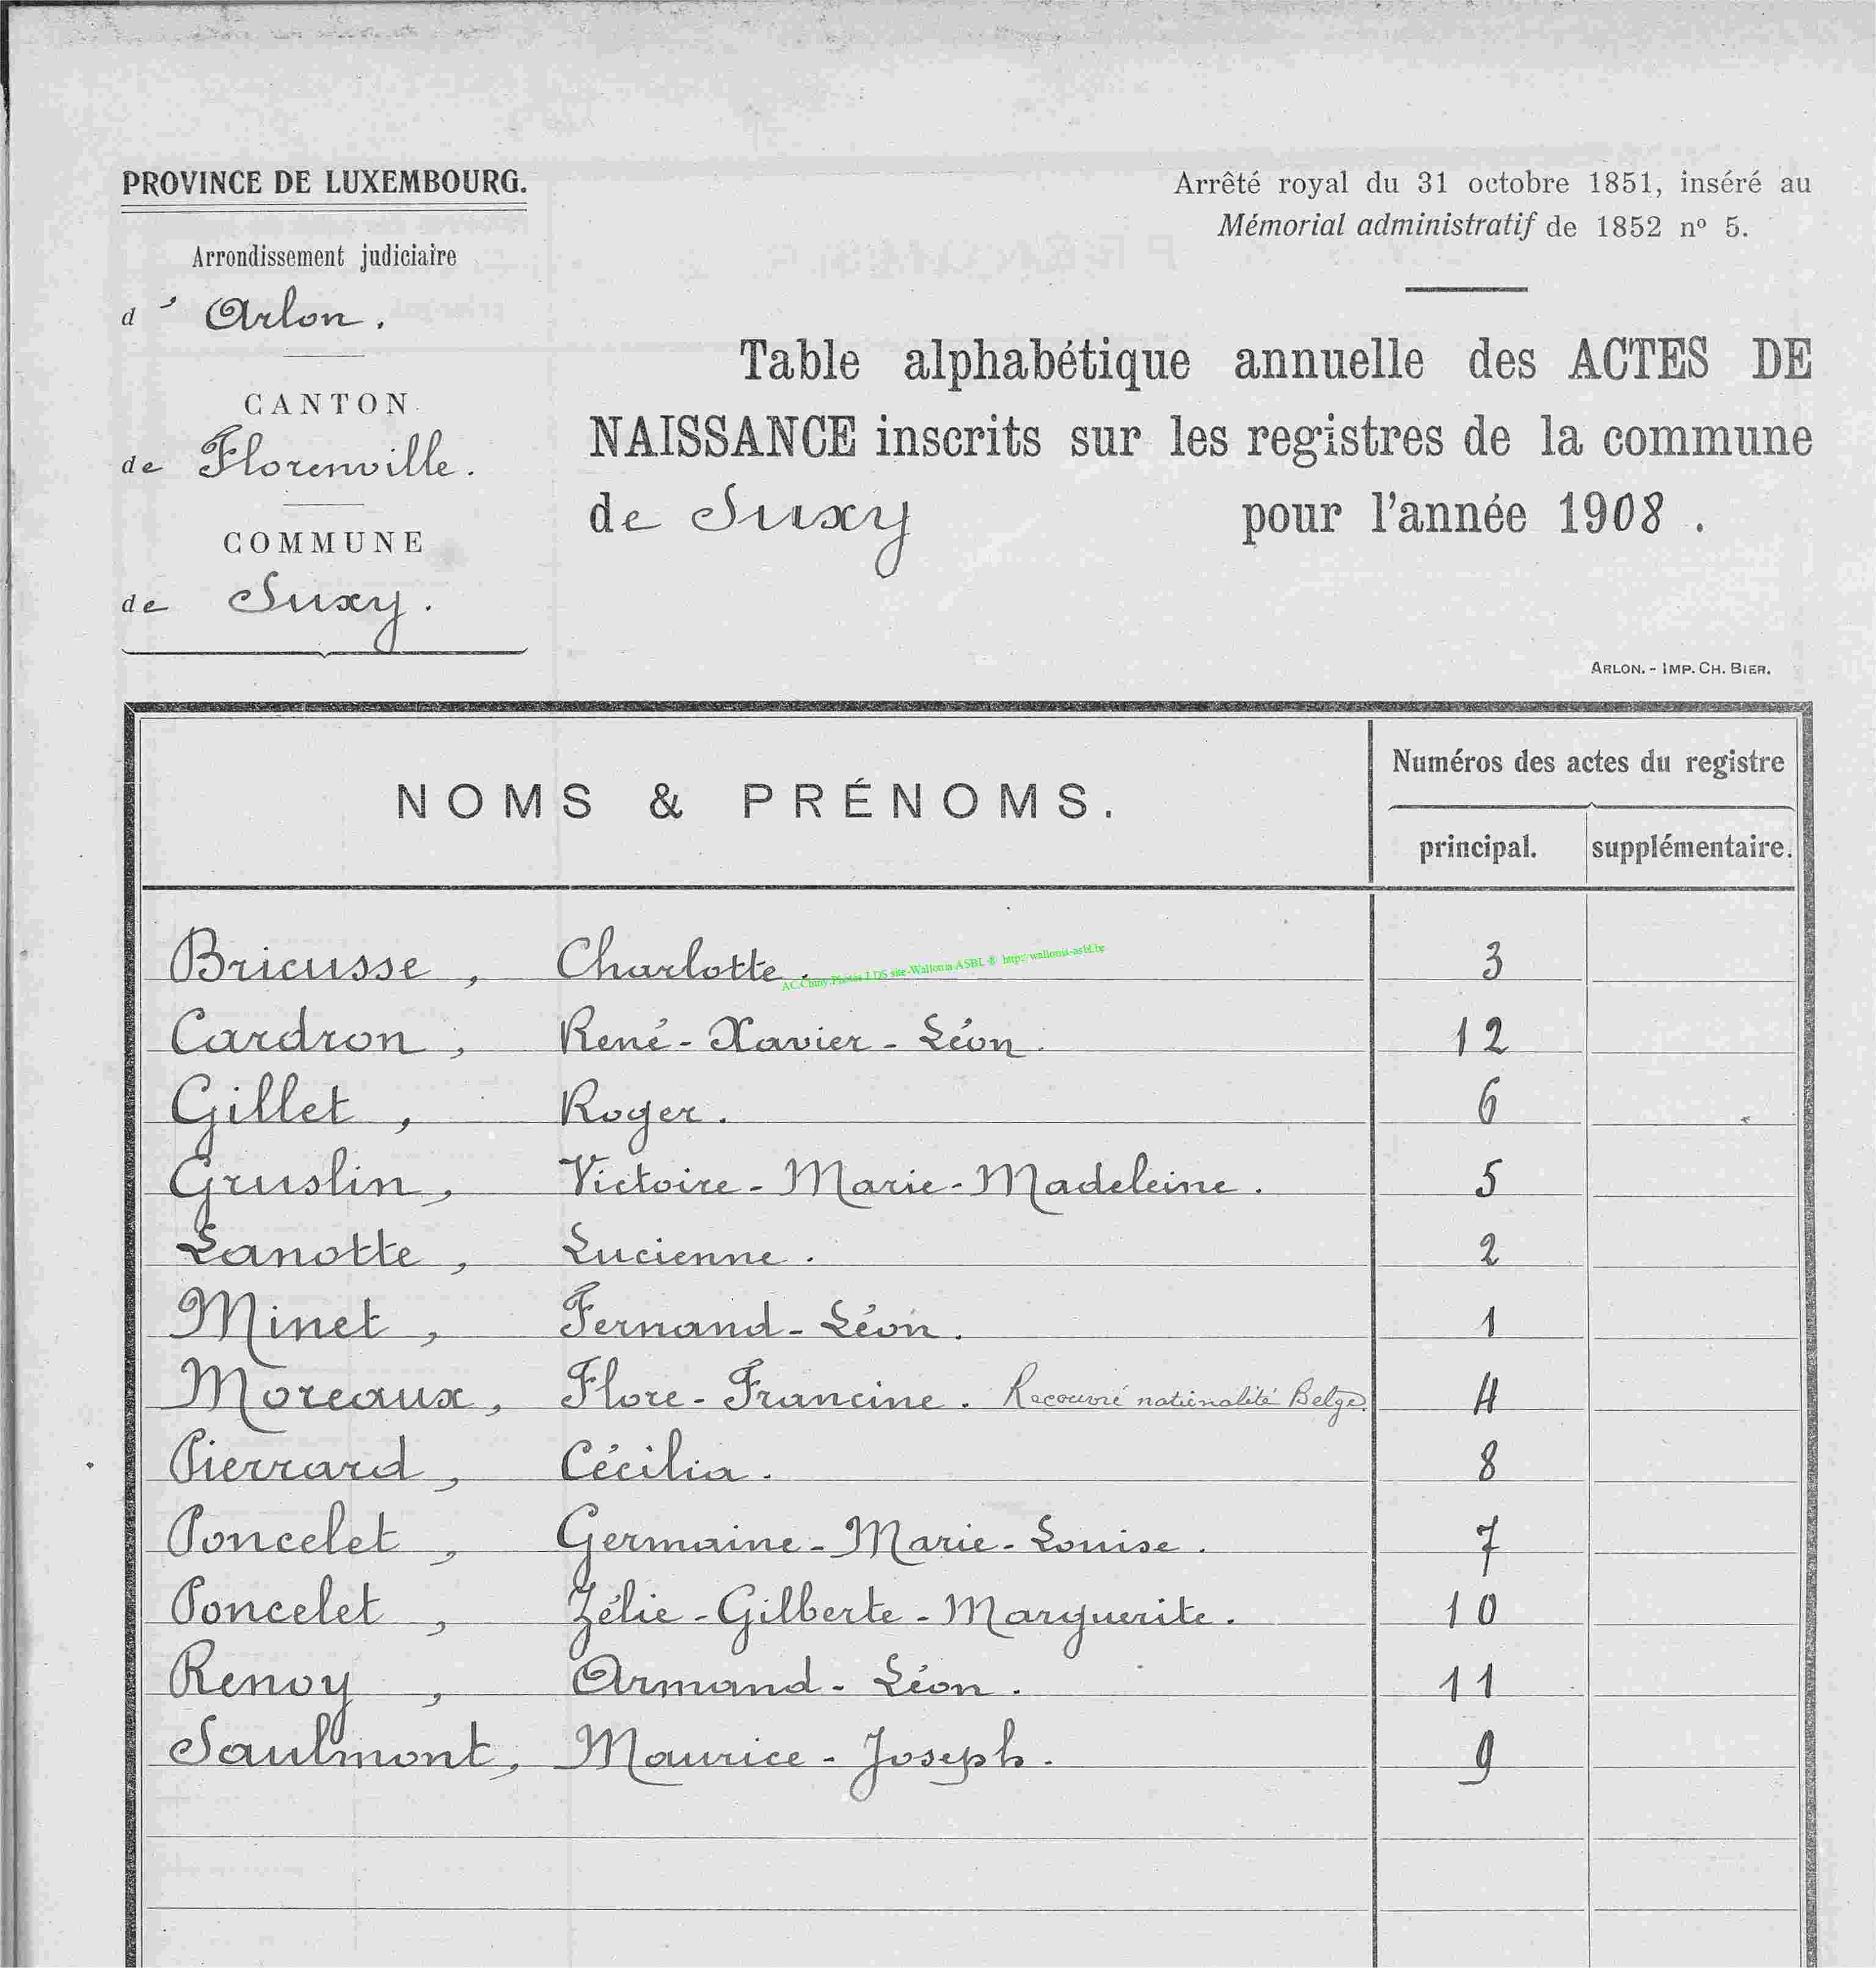 PROVINCE DE LUXEMBOURG.
Arrondissement judiciaire
d' Arlon.
CANTON
de Florenville.
COMMUNE
de Suxy.
Arrêté royal du 31 octobre 1851, inséré au
Mémorial administratif de 1852 nº 5.
Table alphabétique annuelle des ACTES DE
NAISSANCE inscrits sur les registres de la commune
de Suxy pour l'année 1908.
ARLON. - IMP. CH. BIER.
NOMS & PRÉNOMS.
Numéros des actes du registre
principal. supplémentaire.
Bricusse, Charlotte. 3
AC.Chiny.Photos LDS site-Wallonia ASBL ® http://wallonia-asbl.be
Cardron, René-Xavier-Léon. 12
Gillet, Roger. 6
Gruslin, Victoire-Marie-Madeleine. 5
Lanotte, Lucienne. 2
Minet, Fernand-Léon. 1
Moreaux, Flore-Francine. Recouvré nationalité Belge. 4
Pierrard, Cécilia. 8
Poncelet, Germaine-Marie-Louise. 7
Poncelet, Zélie-Gilberte-Marguerite. 10
Renoy, Armand-Léon. 11
Saulmont, Maurice-Joseph. 9